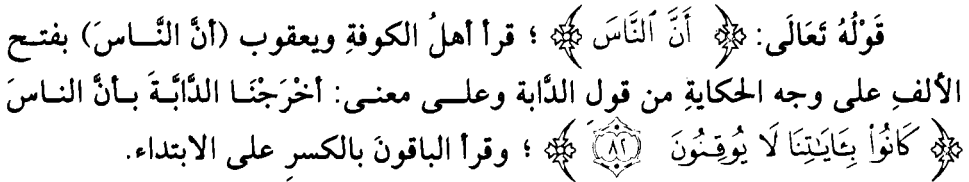 قَوْلُهُ تَعَالَى: ﴿ أَنَّ ٱلنَّاسَ ﴾ ؛ قرأ أهلُ الكوفةِ ويعقوب (أنَّ النَّــاسَ) بفتــح
الألفِ على وجه الحكايةِ من قولِ الدَّابة وعلــى معنـى: أخْرَجْنَـا الدَّابَّـةَ بـأنَّ الناسَ
﴿ كَانُوا۟ بِـَٔايَـٰتِنَا لَا يُوقِنُونَ ٨٢ ﴾ ؛ وقرأ الباقونَ بالكسرِ على الابتداء.